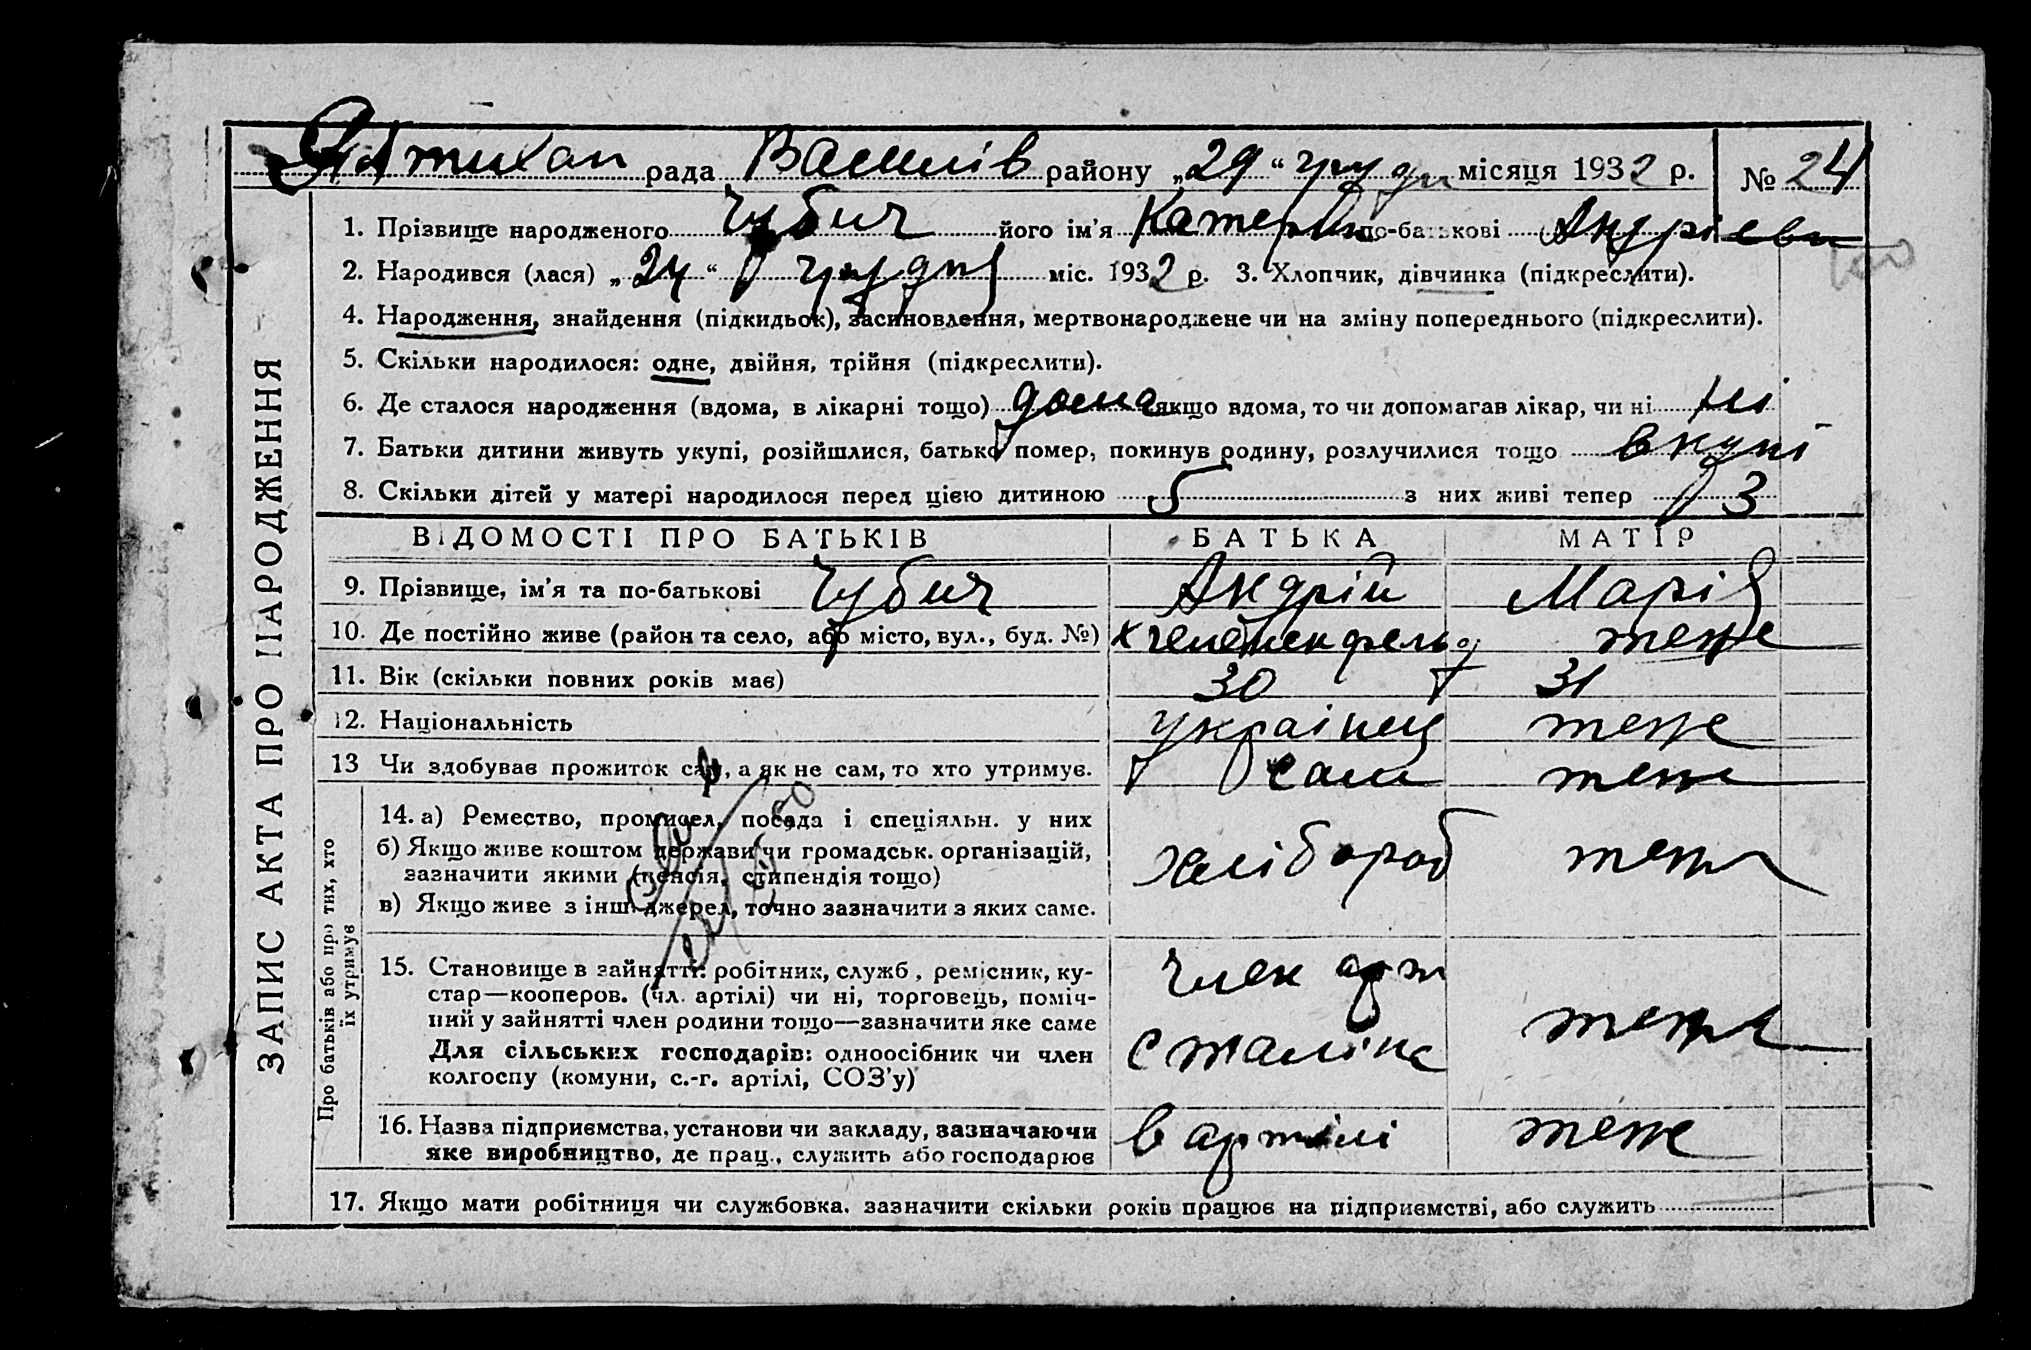 рада Василів району „29“ грудн місяця 1932 р. № 24
ЗАПИС АКТА ПРО НАРОДЖЕННЯ
1. Прізвище народженого Чубич його ім'я Катерин по-батькові Андріевн
2. Народився (лася) „24“ грудня міс. 1932 р. 3. Хлопчик, дівчинка (підкреслити).
4. Народження, знайдення (підкидьок), засиновлення, мертвонароджене чи на зміну попереднього (підкреслити).
5. Скільки народилося: одне, двійня, трійня (підкреслити).
6. Де сталося народження (вдома, в лікарні тощо) дома якщо вдома, то чи допомагав лікар, чи ні ні
7. Батьки дитини живуть укупі, розійшлися, батько помер, покинув родину, розлучилися тощо вкупі
8. Скільки дітей у матері народилося перед цією дитиною 5 з них живі тепер 3
ВІДОМОСТІ ПРО БАТЬКІВ БАТЬКА МАТІР
9. Прізвище, ім'я та по-батькові Чубич Андрій Марія
10. Де постійно живе (район та село, або місто, вул., буд. №) теже
11. Вік (скільки повних років має) 30 31
12. Національність українец теже
13 Чи здобував прожиток сам, а як не сам, то хто утримує. сам теже
Про батьків або про тих, хто
їх утримує
14. а) Ремество, промисел, посада і спеціяльн. у них
б) Якщо живе коштом держави чи громадськ. організацій,
зазначити якими (пенсія, стипендія тощо)
хлібороб теже
в) Якщо живе з інш. джерел, точно зазначити з яких саме.
15. Становище в зайнятті: робітник, служб, ремісник, ку-
член арт
стар—кооперов. (чл. артілі) чи ні, торговець, поміч-
ний у зайнятті член родини тощо—зазначити яке саме
теже
Для сільських господарів: одноосібник чи член
Сталіна
колгоспу (комуни, с.-г. артілі, СОЗ'у)
16. Назва підприємства, установи чи закладу, зазначаючи
в артілі теже
яке виробництво, де прац., служить або господарює
17. Якщо мати робітниця чи службовка, зазначити скільки років працює на підприємстві, або служить